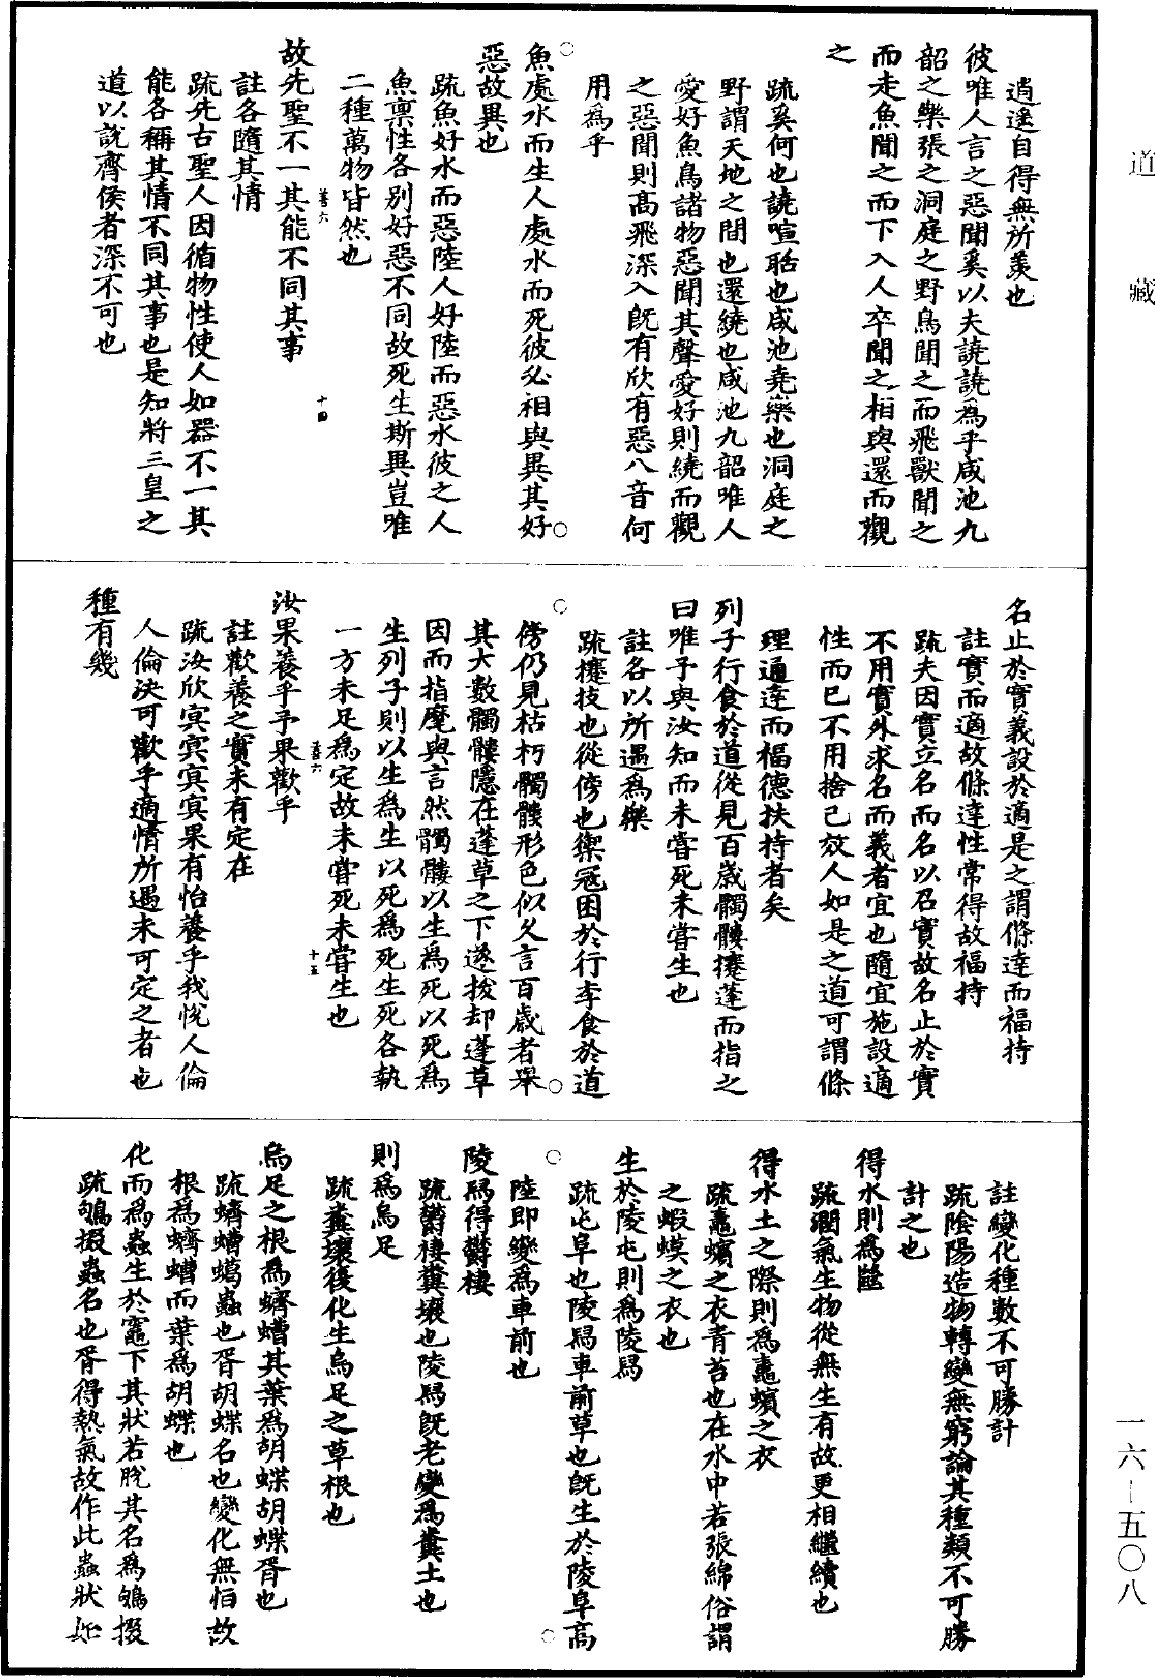 逍遙自得無所羨也
彼唯人言之惡聞奚以夫譊譊爲乎咸池九
韶之樂張之洞庭之野鳥聞之而飛獸聞之
而走魚聞之而下入人卒聞之相與還而觀
之
疏奚何也譊喧聒也咸池堯樂也洞庭之
野謂天地之間也還繞也咸池九韶唯人
愛好魚鳥諸物惡聞其聲愛好則繞而觀
之惡聞則高飛深入既有欣有惡八音何
用爲乎
魚處水而生人處水而死彼必相與異其好
惡故異也
疏魚好水而惡陸人好陸而惡水彼之人
魚稟性各別好惡不同故死生斯異豈唯
二種萬物皆然也
善六
十四
故先聖不一其能不同其事
註各隨其情
疏先古聖人因循物性使人如器不一其
能各稱其情不同其事也是知將三皇之
道以説齊侯者深不可也
名止於實義設於適是之謂條達而福持
註實而適故條達性常得故福持
疏夫因實立名而名以召實故名止於實
不用實外求名而義者宜也隨宜施設適
性而已不用捨己效人如是之道可謂條
理通達而福德扶持者矣
列子行食於道從見百歲髑髏攓蓬而指之
曰唯予與汝知而未嘗死未嘗生也
註各以所遇爲樂
疏攓拔也從傍也禦寇困於行李食於道
傍仍見枯朽髑髏形色似久言百歲者舉
其大數髑髏隱在蓬草之下遂拔却蓬草
因而指麾與言然髑髏以生爲死以死爲
生列子則以生爲生以死爲死生死各執
一方未足爲定故未嘗死未嘗生也
善六
十五
汝果養乎予果歡乎
註歡養之實未有定在
疏汝欣冥冥冥冥果有怡養乎我悅人倫
人倫決可歡乎適情所遇未可定之者也
種有幾
註變化種數不可勝計
疏陰陽造物轉變無窮論其種類不可勝
計之也
得水則爲㡭
疏潤氣生物從無生有故更相繼續也
得水土之際則爲鼃蠙之衣
疏鼃蠙之衣青苔也在水中若張綿俗謂
之蝦蟆之衣也
生於陵屯則爲陵舄
疏屯阜也陵舄車前草也既生於陵阜高
陸即變爲車前也
陵舄得鬱棲
疏鬱棲糞壤也陵舄既老變爲糞土也
則爲烏足
疏糞壤後化生烏足之草根也
烏足之根爲蠐螬其葉爲胡蝶胡蝶胥也
疏蠐螬蝎蟲也胥胡蝶名也變化無恒故
根爲蠐螬而葉爲胡蝶也
化而爲蟲生於竈下其狀若脫其名爲鴝掇
疏鴝掇蟲名也胥得熱氣故作此蟲狀如
道藏
一六—五〇八